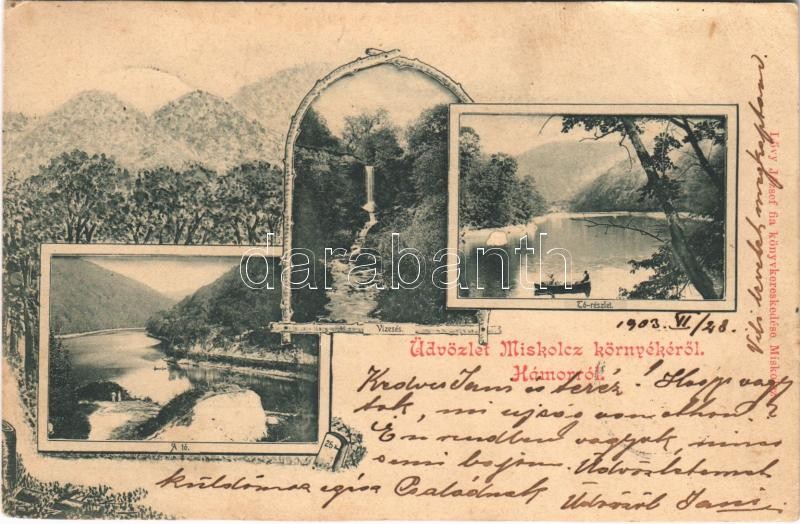 Vízesés.
Tó-részlet.
A tó.
25
Üdvözlet Miskolcz környékéről.
Hámorról.
Lővy József fia könyvkereskedése Miskolcz
1903. VI/28.
Kedves Jani és Teréz! Hogy vagy
tok, mi ujság van otthon?
Én rendben vagyok, nincs
semi bajom. Üdvözletemet
küldöm az egész Családnak
Üdvözöl Jani
darabanth